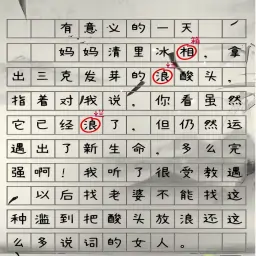 有意义的一天
妈妈清里冰相，拿
出三克发芽的浪酸头，
指着对我说，你看虽然
它已经浪了，但仍然运
遇出了新生命，多么完
强啊！我听了很受教遇
以后找老婆不能找这
种滥到把酸头放浪还这
么多说词的女人。